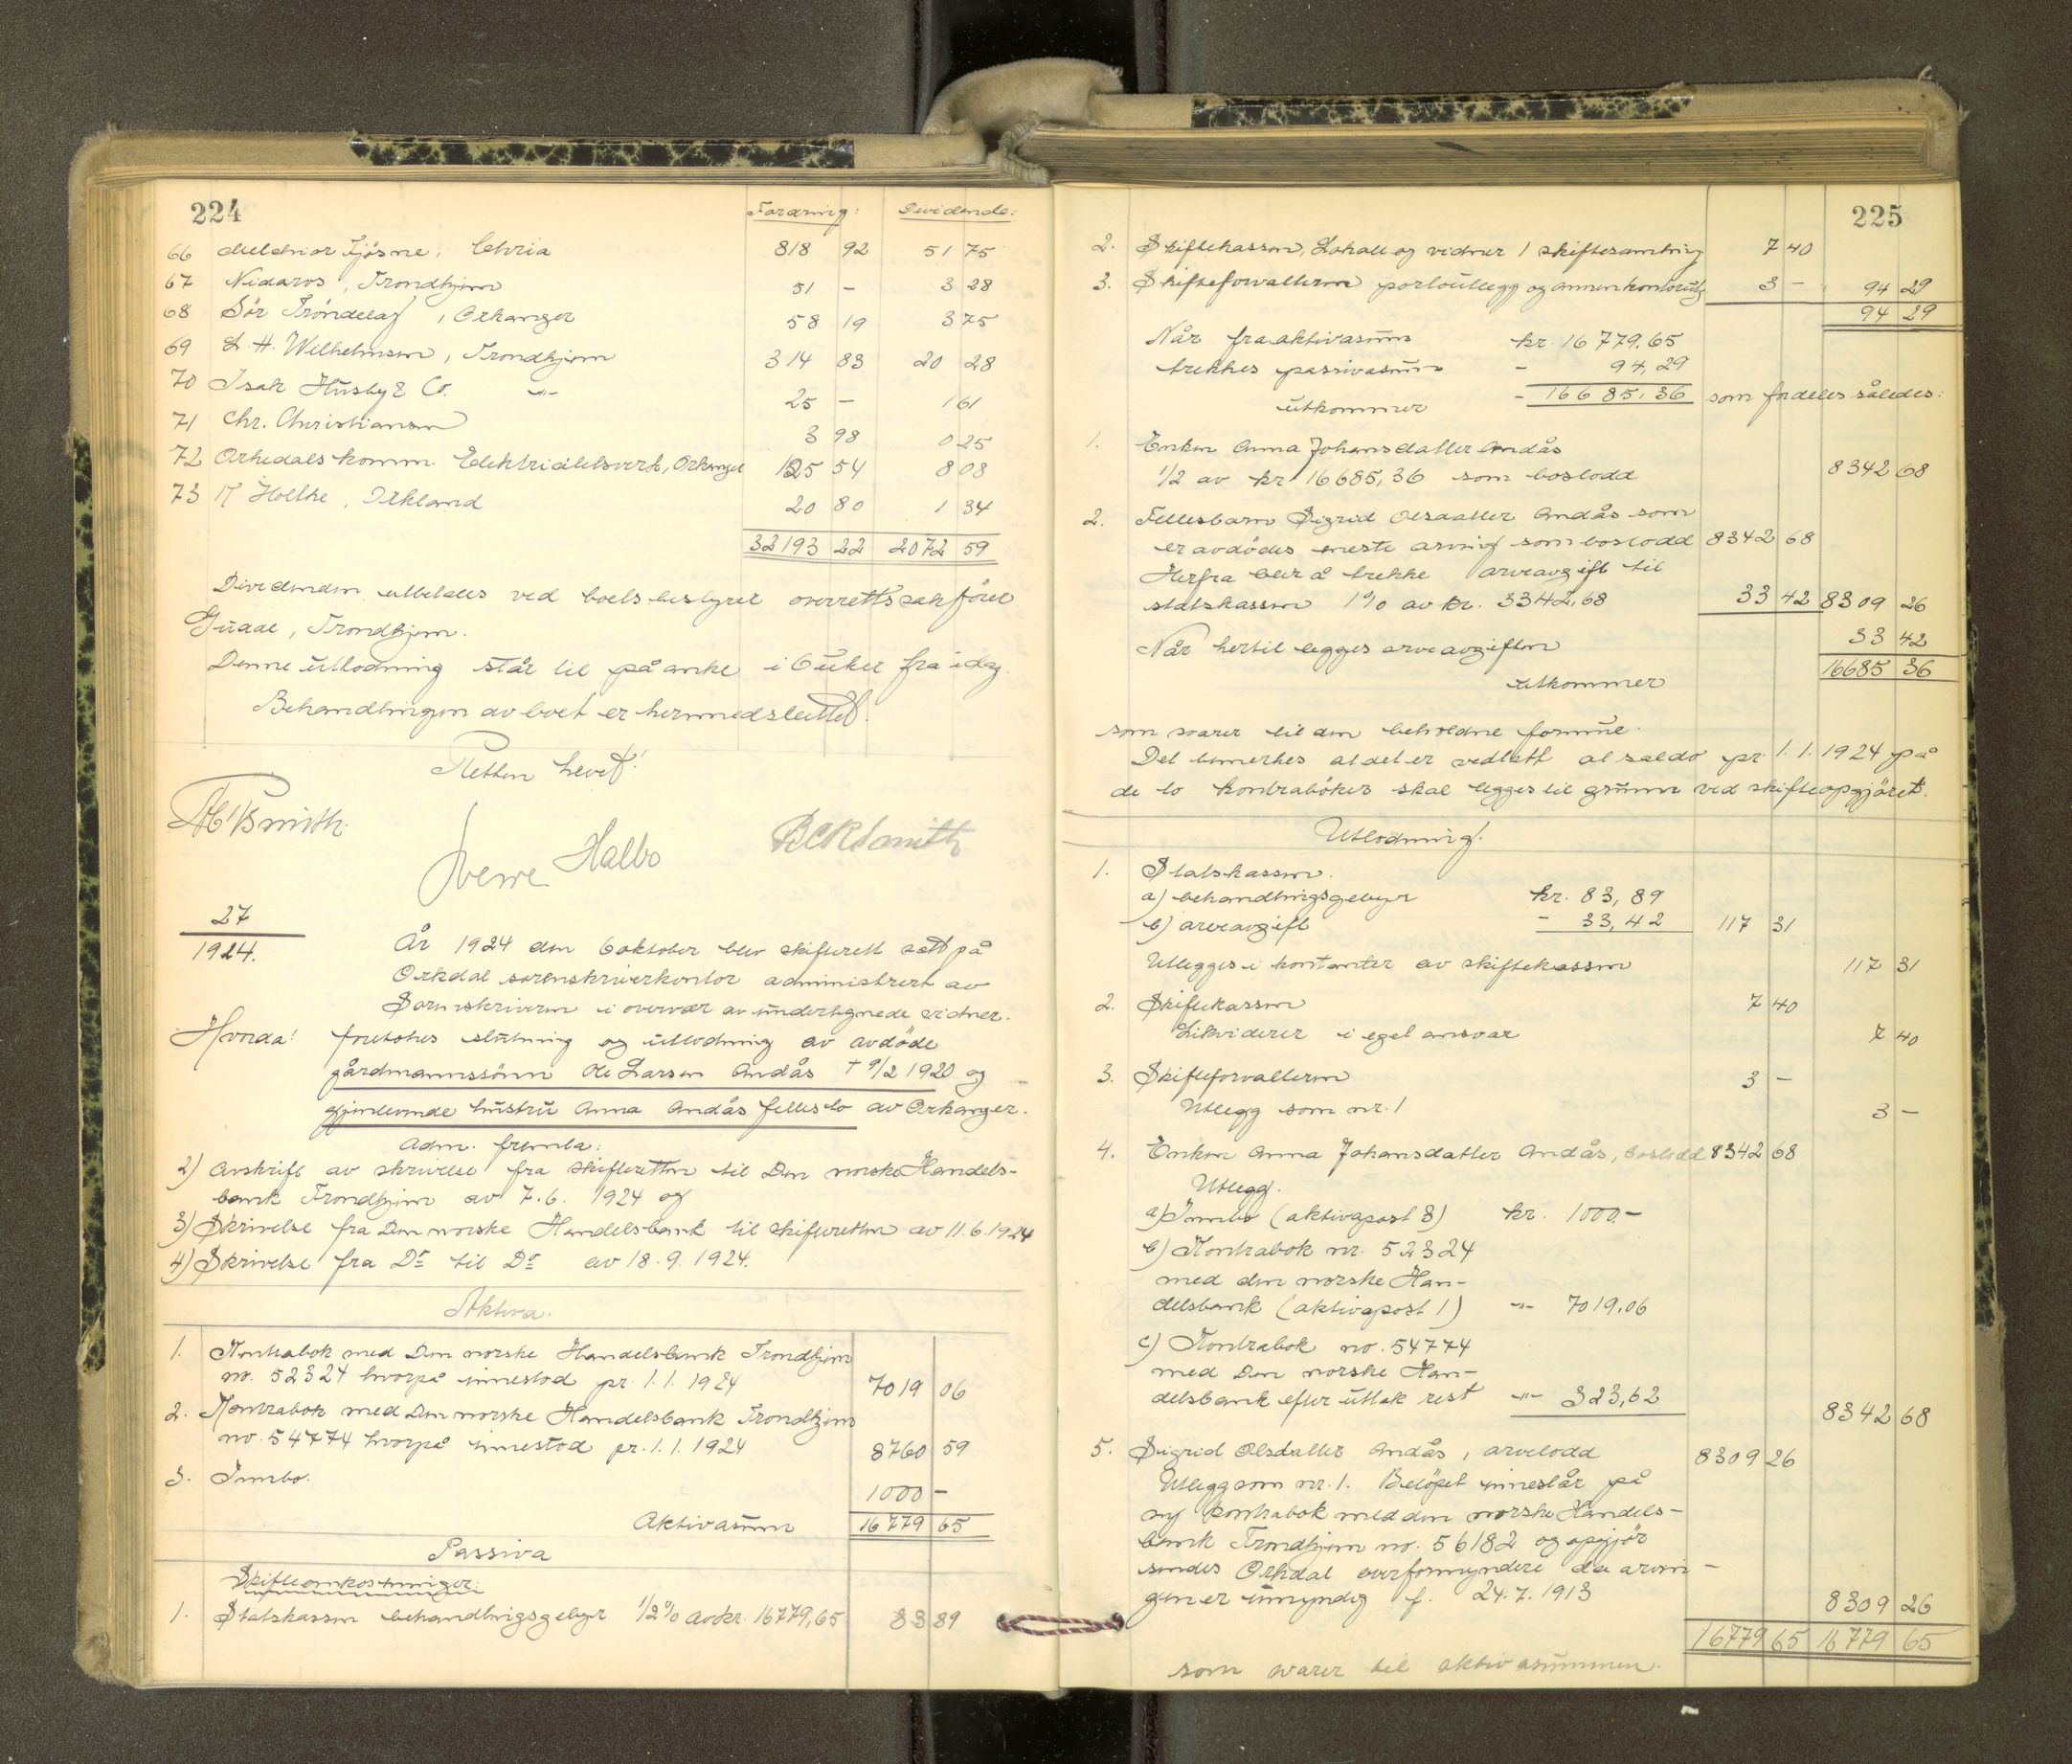 224
Fordring: Dividende:
66 Melchior Fjösne, Chria 818 92 51 75
67 Nidaros, Trondhjem 51 - 3 28
68 Sör Tröndelag, Orkanger 58 19 3 75
69 L. H. Wilhelmsen, Trondhjem 314 83 20 28
70 Isak Husby & Co. -"- 25 - 1 61
71 Chr. Christiansen 3 98 0 25
72 Orkedals komm. Elektricitetsverk, Orkanger 125 54 8 08
73 Holthe, Orkland 20 80 1 34
32193 22 2072 59
Dividenden utbetales ved boets bestyrer overrettssakförer
Guaal, Trondhjem.
Denne utlodning står til påanke i 6 uker fra idag.
Behandlingen av boet er hermed sluttet.
Retten hevet!
Smith.
Sverre Halbo
Smith
27
1924.
År 1924 den 6 oktober blev skifterett satt på
Orkdal sorenskriverkontor administrert av
Sorenskriveren i overvær av undertegnede vidner.
Hvorda! foretokes slutning og utlodning av avdöde
gårdmannssönn Ole Larsen Andås † 9/2 1920 og
gjenlevende hustru Anna Andås fellesbo av Orkanger.
Adm. fremla:
2) Avskrift av skrivelse fra skifteretten til Den norske Handels-
bank Trondhjem av 7.6. 1924 og
3) Skrivelse fra Den norske Handelsbank til skifteretten av 11.6.1924
4) Skrivelse fra Do til Do av 18.9.1924.
Aktiva.
1. Kontrabok med Den norske Handelsbank Trondhjem
no. 52324 hvorpå innestod pr. 1.1.1924 7019 06
2. Kontrabok med Den norske Handelsbank Trondhjem
no. 54774 hvorpå innestod pr. 1.1.1924 8760 59
3. Innbo. 1000 -
Aktivasum 16779 65
Passiva
Skifteomkostninger:
1. Statskassen behandlingsgebyr 1/2 % av kr. 16779,65 83 89
225
2. Skiftekassen, Lokale og vidner 1 skiftesamling 7 40
3. Skifteforvalteren portoutlegg og annen kontorutg. 3 - 94 29
94 29
Når fra aktivasum kr. 16779.65
trekkes passivasum - 94,29
utkommer - 16685,36 som fordeles således:
1. Enken Anna Johansdatter Andås
1/2 av kr 16685,36 som boslodd 8342 68
2. Fellesbarn Sigrid Olsdatter Andås som
er avdödes eneste arving som boslodd 8342 68
Herfra blir å trekke arveavgift til
statskassen 1% av kr. 3342,68 33 42 8309 26
Når hertil legges arveavgiften 33 42
utkommer 16685 36
som svarer til den beholdne formue.
Det bemerkes at det er vedtatt at saldo pr 1.1.1924 på
de to kontraböker skal legges til grunn ved skifteopgjöret.
Utlodning.
1. Statskassen.
a) behandlingsgebyr kr. 83,89
b) arveavgift - 33,42 117 31
Utlegges i kontanter av skiftekassen 117 31
2. Skiftekassen 7 40
Likviderer i eget ansvar 7 40
3. Skifteforvalteren 3 -
Utlegg som nr. 1 3 -
4. Enken Anna Johansdatter Andås, boslodd 8342 68
Utlegg.
a) Innbo (aktivapost 3) kr. 1000.-
b) Kontrabok nr. 52324
med den norske Han-
delsbank (aktivapost 1) -"- 7019,06
c) Kontrabok no. 54774
med Den norske Han-
delsbank efter uttak rest -"- 323,62 8342 68
5. Sigrid Olsdatter Andås, arvelodd 8309 26
Utlegg som nr. 1. Belöpet innestår på
ny kontrabok med den norske Handels-
bank Trondhjem no. 56182 og opgjör
sendes Orkdal overformynderi da arvin-
gen er umyndig f. 24.7.1913 8309 26
16779 65 16779 65
som svarer til aktivasummen.